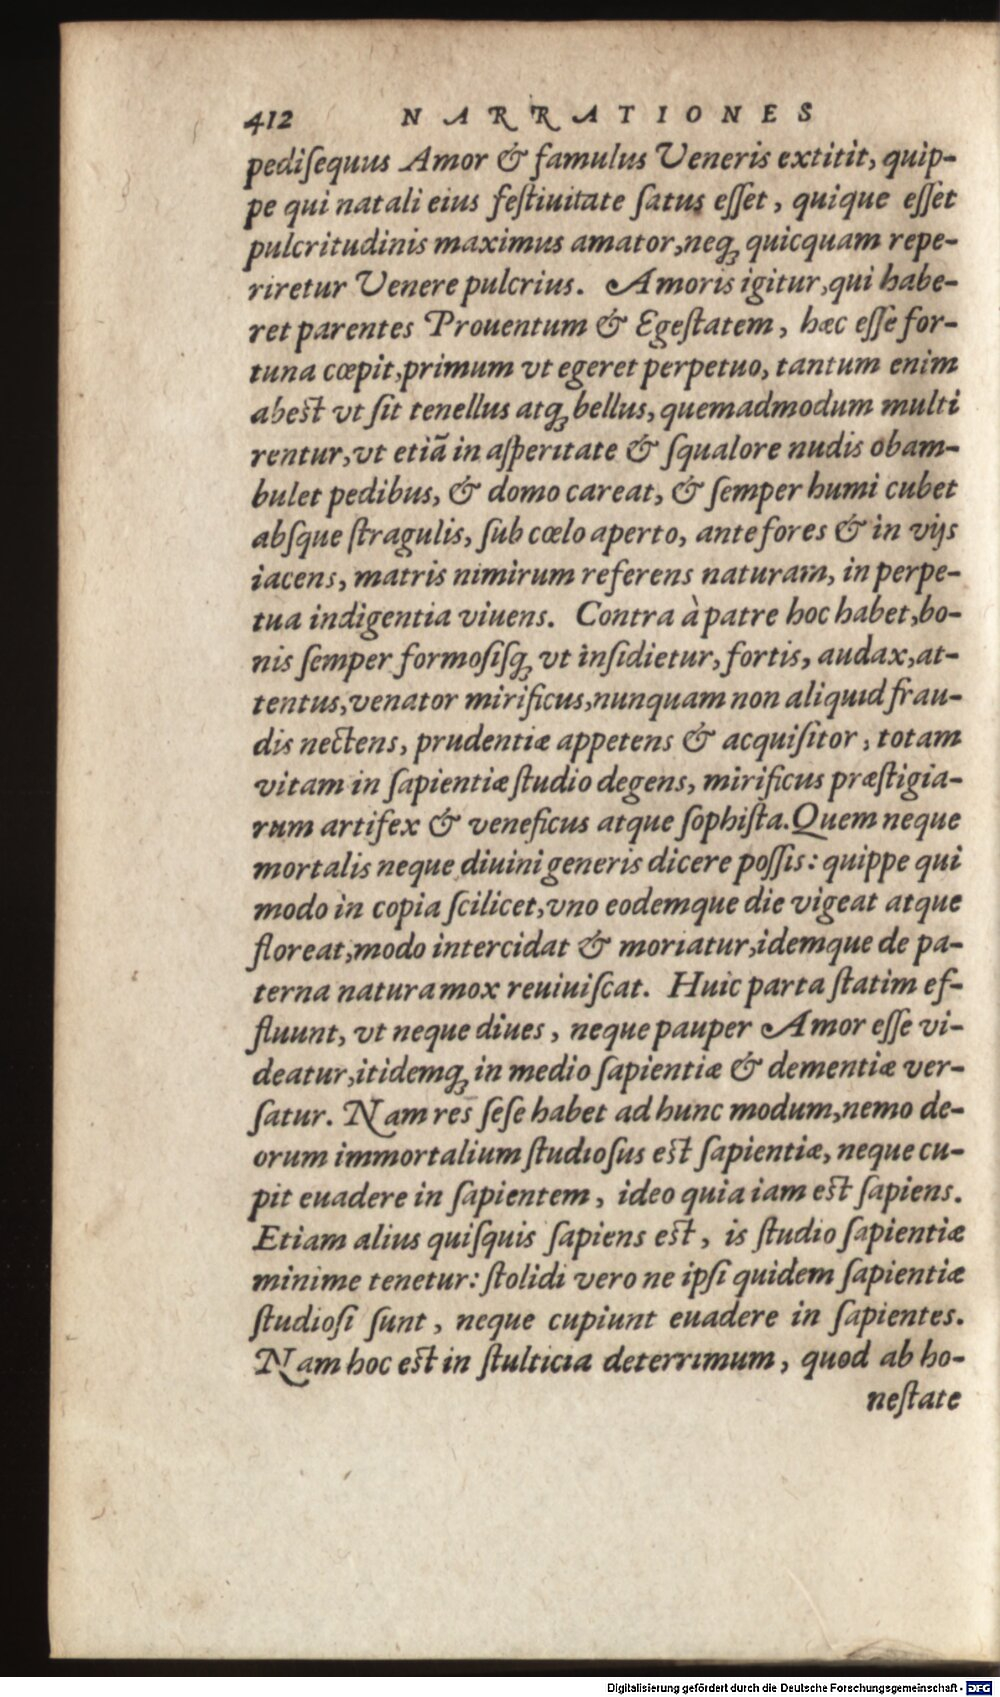 412 NARRATIONES
pediſequus Amor & famulus Veneris extitit, quip-
pe qui natali eius feſtiuitate ſatus eſſet, quique eſſet
pulcritudinis maximus amator, neq; quicquam repe-
riretur Venere pulcrius. Amoris igitur, qui habe-
ret parentes Prouentum & Egeſtatem, hæc eſſe for-
tuna cœpit, primum vt egeret perpetuo, tantum enim
abest vt ſit tenellus atq; bellus, quemadmodum multi
rentur, vt etiã in aſperitate & ſqualore nudis obam-
bulet pedibus, & domo careat, & ſemper humi cubet
abſque ſtragulis, ſub cœlo aperto, ante fores & in vijs
iacens, matris nimirum referens naturam, in perpe-
tua indigentia viuens. Contra à patre hoc habet, bo-
nis ſemper formoſiſq; vt inſidietur, fortis, audax, at-
tentus, venator mirificus, nunquam non aliquid frau-
dis nectens, prudentiæ appetens & acquiſitor, totam
vitam in ſapientiæ ſtudio degens, mirificus præſtigia-
rum artifex & veneficus atque ſophiſta. Quem neque
mortalis neque diuini generis dicere poſſis: quippe qui
modo in copia ſcilicet, vno eodemque die vigeat atque
floreat, modo intercidat & moriatur, idemque de pa-
terna natura mox reuiuiſcat. Huic parta ſtatim ef-
fluunt, vt neque diues, neque pauper Amor eſſe vi-
deatur, itidemq; in medio ſapientiæ & dementiæ ver-
ſatur. Nam res ſeſe habet ad hunc modum, nemo de-
orum immortalium ſtudioſus est ſapientiæ, neque cu-
pit euadere in ſapientem, ideo quia iam est ſapiens.
Etiam alius quiſquis ſapiens est, is ſtudio ſapientiæ
minime tenetur: ſtolidi vero ne ipſi quidem ſapientiæ
ſtudioſi ſunt, neque cupiunt euadere in ſapientes.
Nam hoc est in ſtulticia deterrimum, quod ab ho-
neſtate
Digitalisierung gefördert durch die Deutsche Forschungsgemeinschaft - DFG